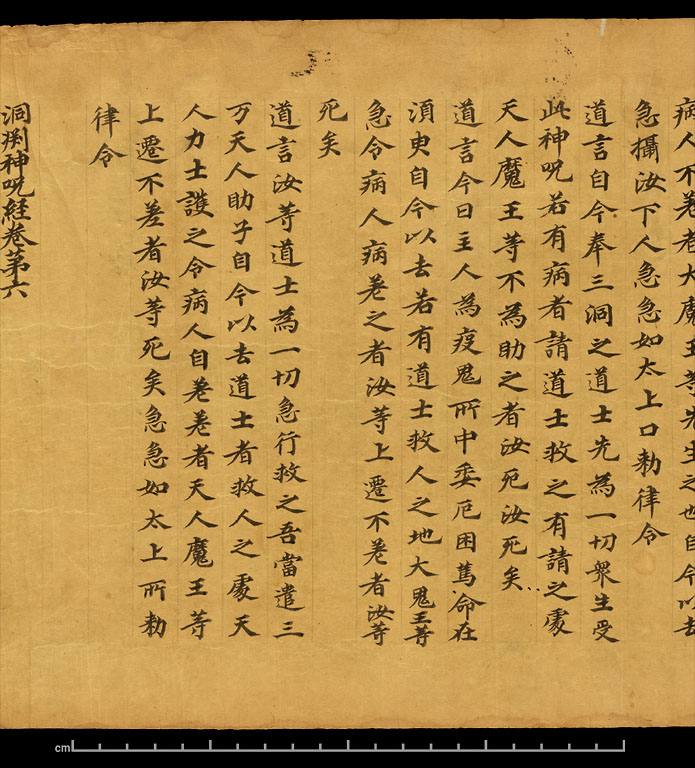 病人不差者大魔王等先生之也自今以去
急攝汝下人急急如太上口勑律令
道言自今奉三洞之道士先為一切衆生受
此神呪若有病者請道士救之有請之處
天人魔王等不為助之者汝死汝死矣
道言今日主人為疫鬼所中委厄困篤命在
湏臾自今以去若有道士救人之地大鬼王等
急令病人病差之者汝等上遷不差者汝等
死矣
道言汝等道士為一切急行救之吾當遣三
万天人助子自今以去道士者救人之處天
人力士護之令病人自差差者天人魔王等
上遷不差者汝等死矣急急如太上所勑
律令
洞渕神呪経卷第六
cm